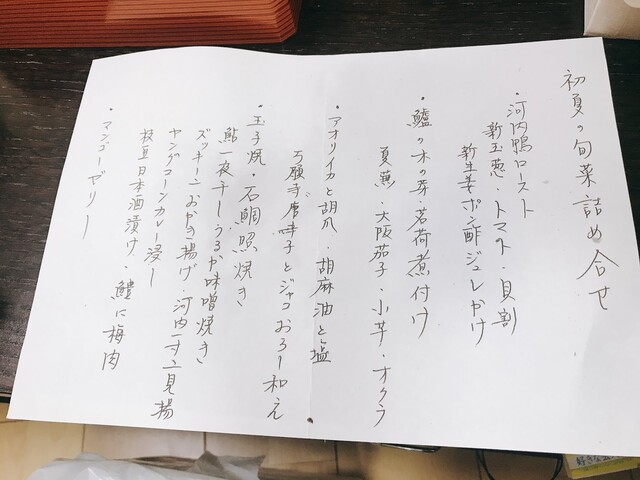 初夏の旬菜詰め合せ
・河内鴨ロースト
新玉葱・トマト・貝割
新生姜ポン酢ジュレかけ
・鱸の木の芽・茗荷煮付け
夏蕪・大阪茄子・小芋・オクラ
・アオリイカと胡瓜・胡麻油と塩
万願寺唐味子とジャコおろし和え
・玉子焼・石鯛照焼き
鮎一夜干しうるか味噌焼き
ズッキーニおかき揚げ・河内一寸二見揚
ヤングコーンカレー浸し
枝豆日本酒漬け・鱧に梅肉
・マンゴーゼリー